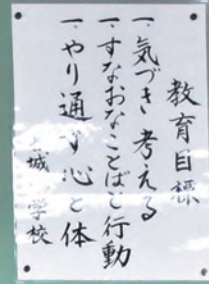 教育目標
一、気づき 考える
一、すなおなことばと行動
一、やり通す心と体
城 学校